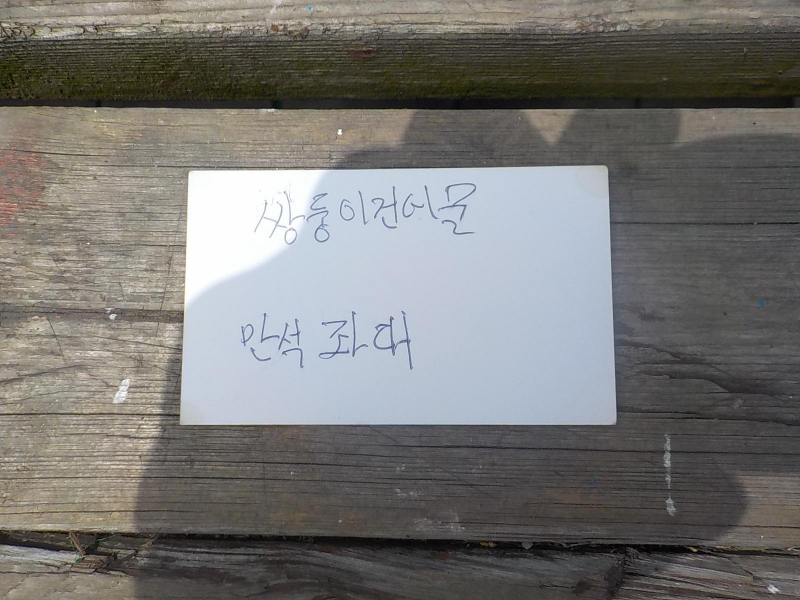 쌍둥이건어물
만석 좌대